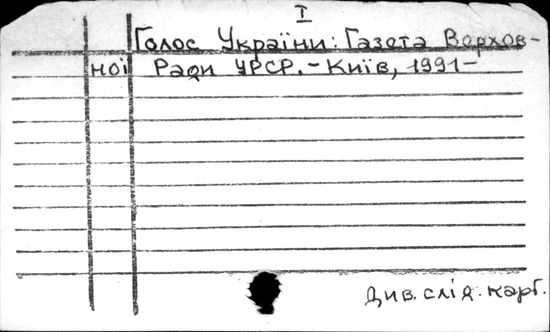 I
Голос України: Газета Верхов-
ної Ради УРСР. - Київ, 1991-
Див. слід. карт.